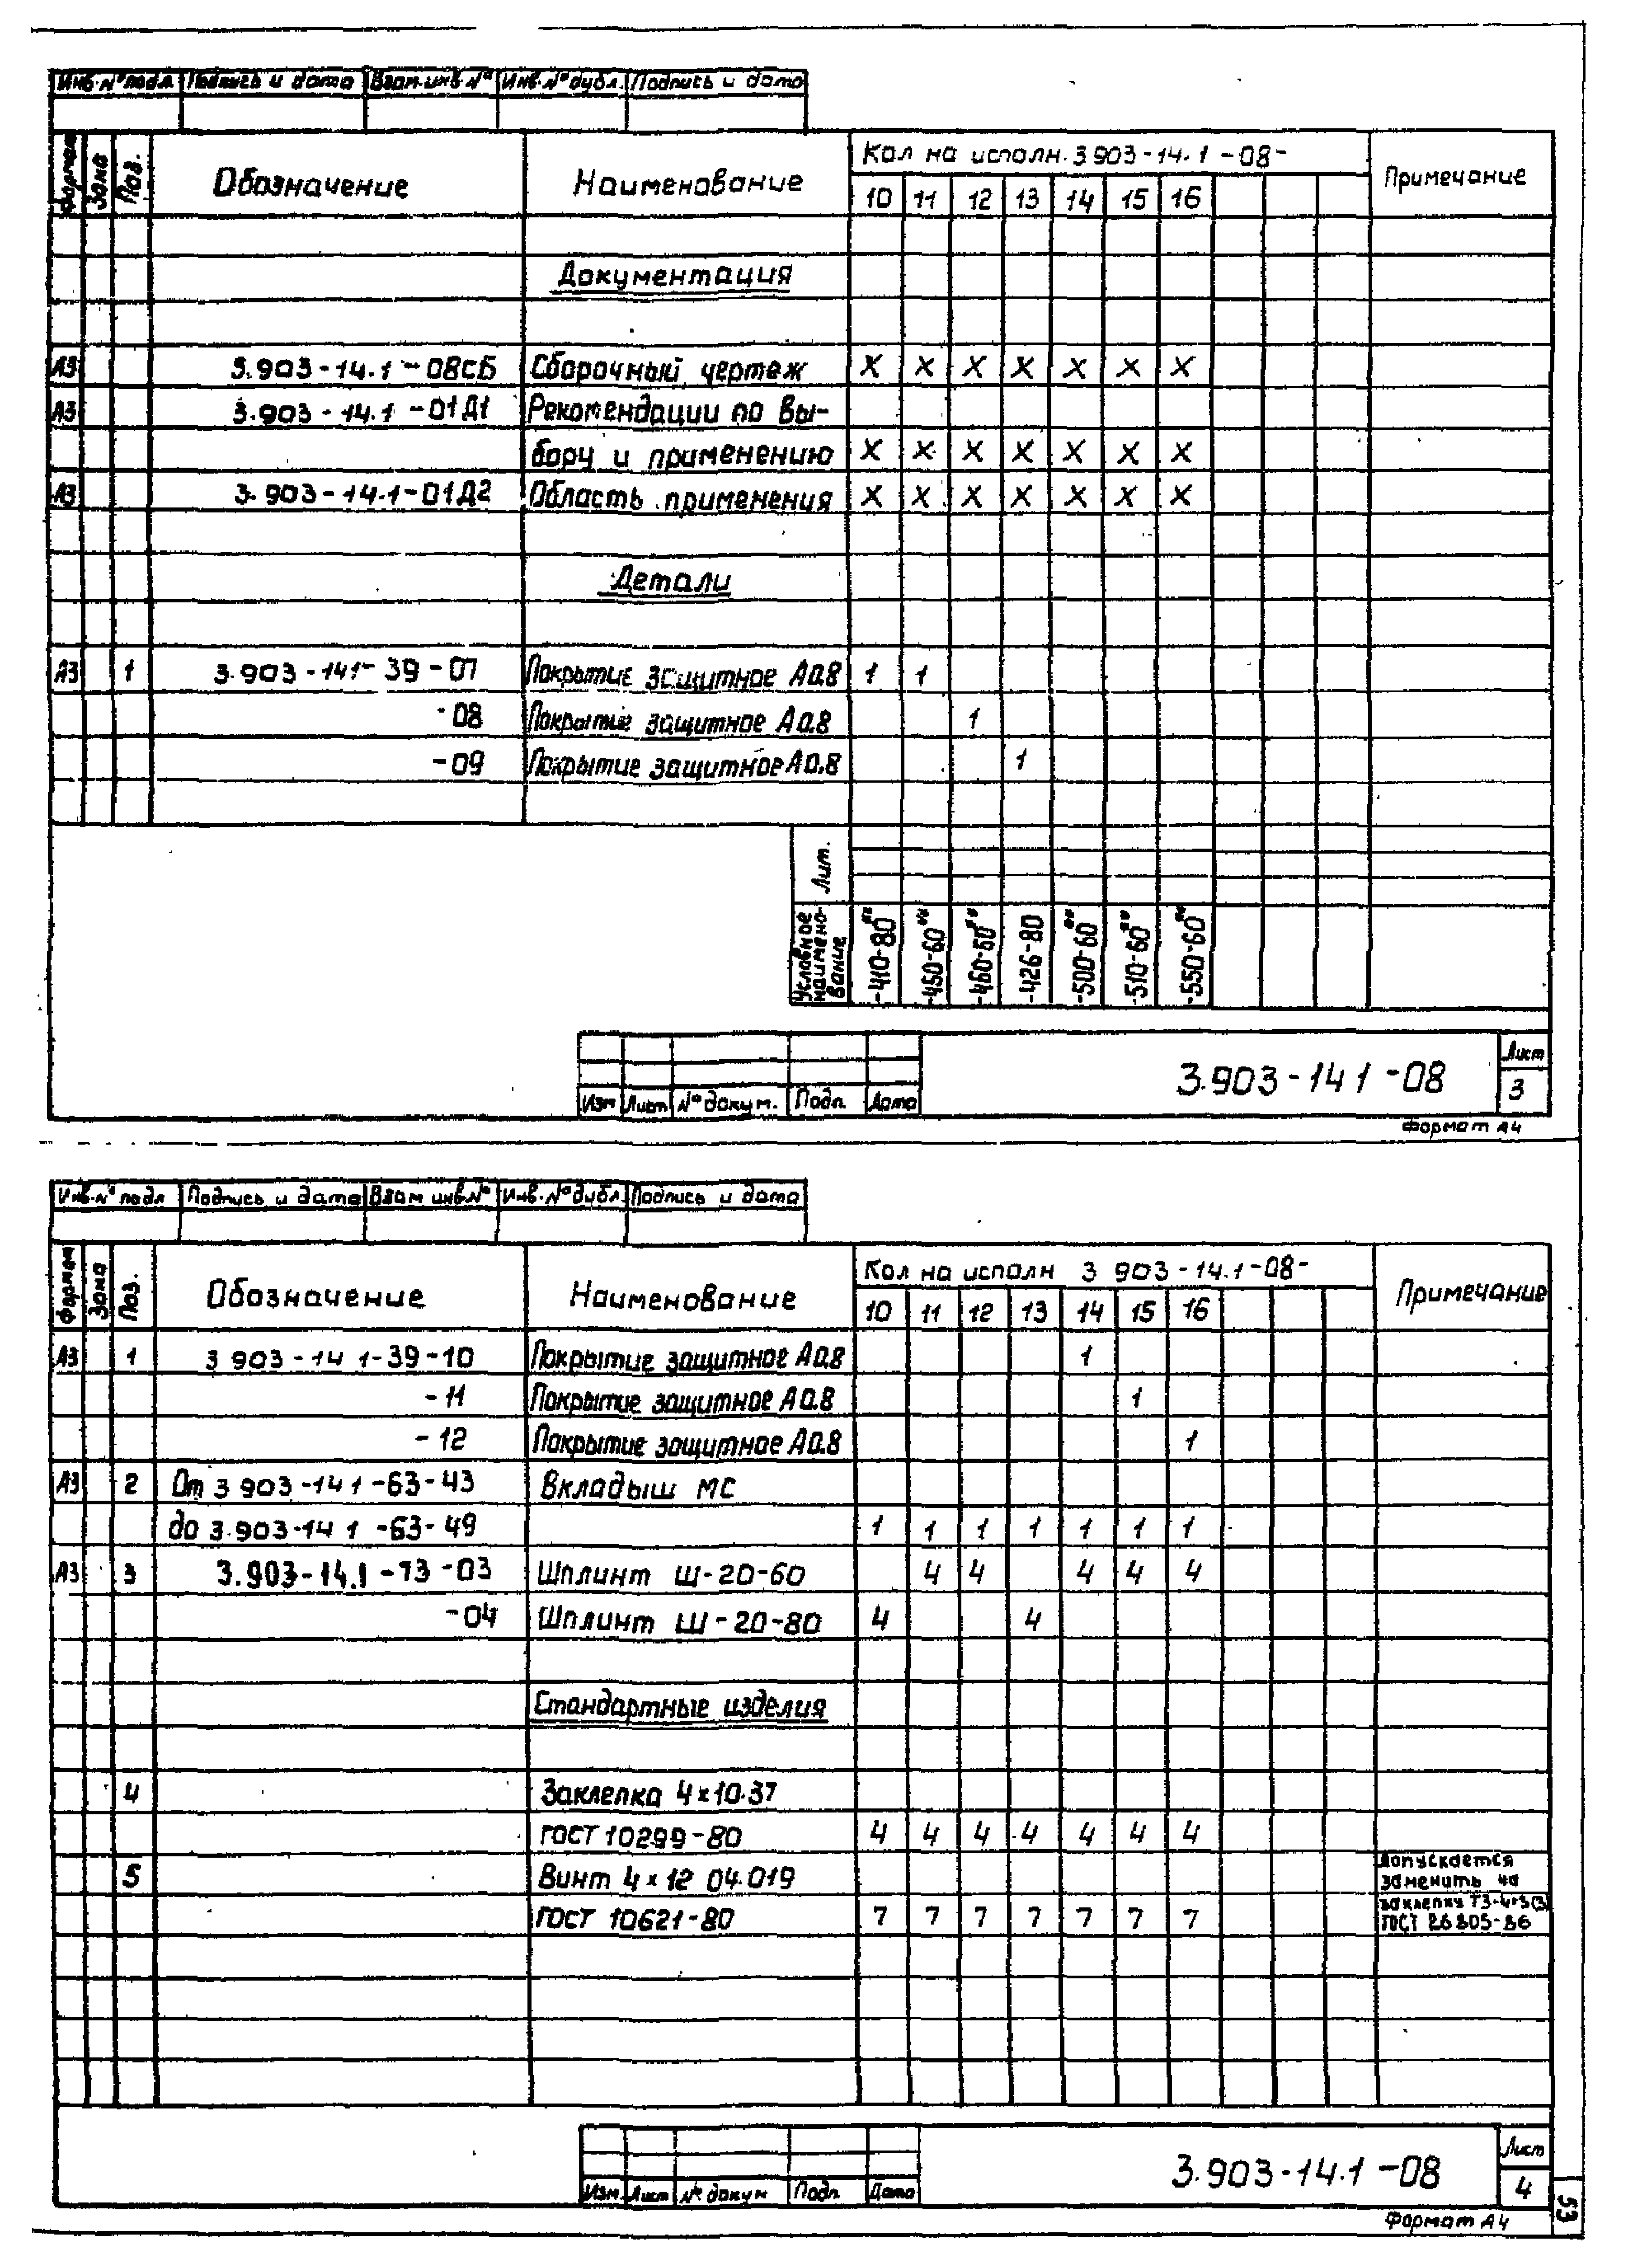 Инв.№ подл. Подпись и дата Взам.инв.№ Инв.№ дубл. Подпись и дата
Формат Зона Поз. Обозначение Наименование Кол на исполн. 3.903-14.1-08- Примечание
10 11 12 13 14 15 16
Документация
А3 3.903-14.1-08СБ Сборочный чертеж X X X X X X X
А3 3.903-14.1-01Д1 Рекомендации по вы-
бору и применению X X X X X X X
А3 3.903-14.1-01Д2 Область применения X X X X X X X
Детали
А3 1 3.903-14.1-39-07 Покрытие защитное А0.8 1 1
-08 Покрытие защитное А0.8 1
-09 Покрытие защитное А0.8 1
Лит.
Условное наимено-вание -410-80** -450-60** -460-60** -426-80 -500-60** -510-60** -550-60**
Изм Лист № докум. Подп. Дата 3.903-14 1-08 Лист 3
Формат А4
Инв.№ подл Подпись и дата Взам инв.№ Инв.№ дубл. Подпись и дата
Формат Зона Поз. Обозначение Наименование Кол на исполн 3 903-14.1-08- Примечание
10 11 12 13 14 15 16
А3 1 3 903-14 1-39-10 Покрытие защитное А0.8 1
-11 Покрытие защитное А0.8 1
-12 Покрытие защитное А0.8 1
А3 2 От 3 903-14 1-63-43 Вкладыш МС
до 3.903-14 1-63-49 1 1 1 1 1 1 1
А3 3 3.903-14.1-73-03 Шплинт Ш-20-60 4 4 4 4 4
-04 Шплинт Ш-20-80 4 4
Стандартные изделия
4 Заклепка 4×10.37
ГОСТ 10299-80 4 4 4 4 4 4 4
5 Винт 4×12 04.019 Допускается заменить на
ГОСТ 10621-80 7 7 7 7 7 7 7 заклепку ГОСТ 26805-86
Изм Лист № докум Подп. Дата 3.903-14.1-08 Лист 4
Формат А4
53